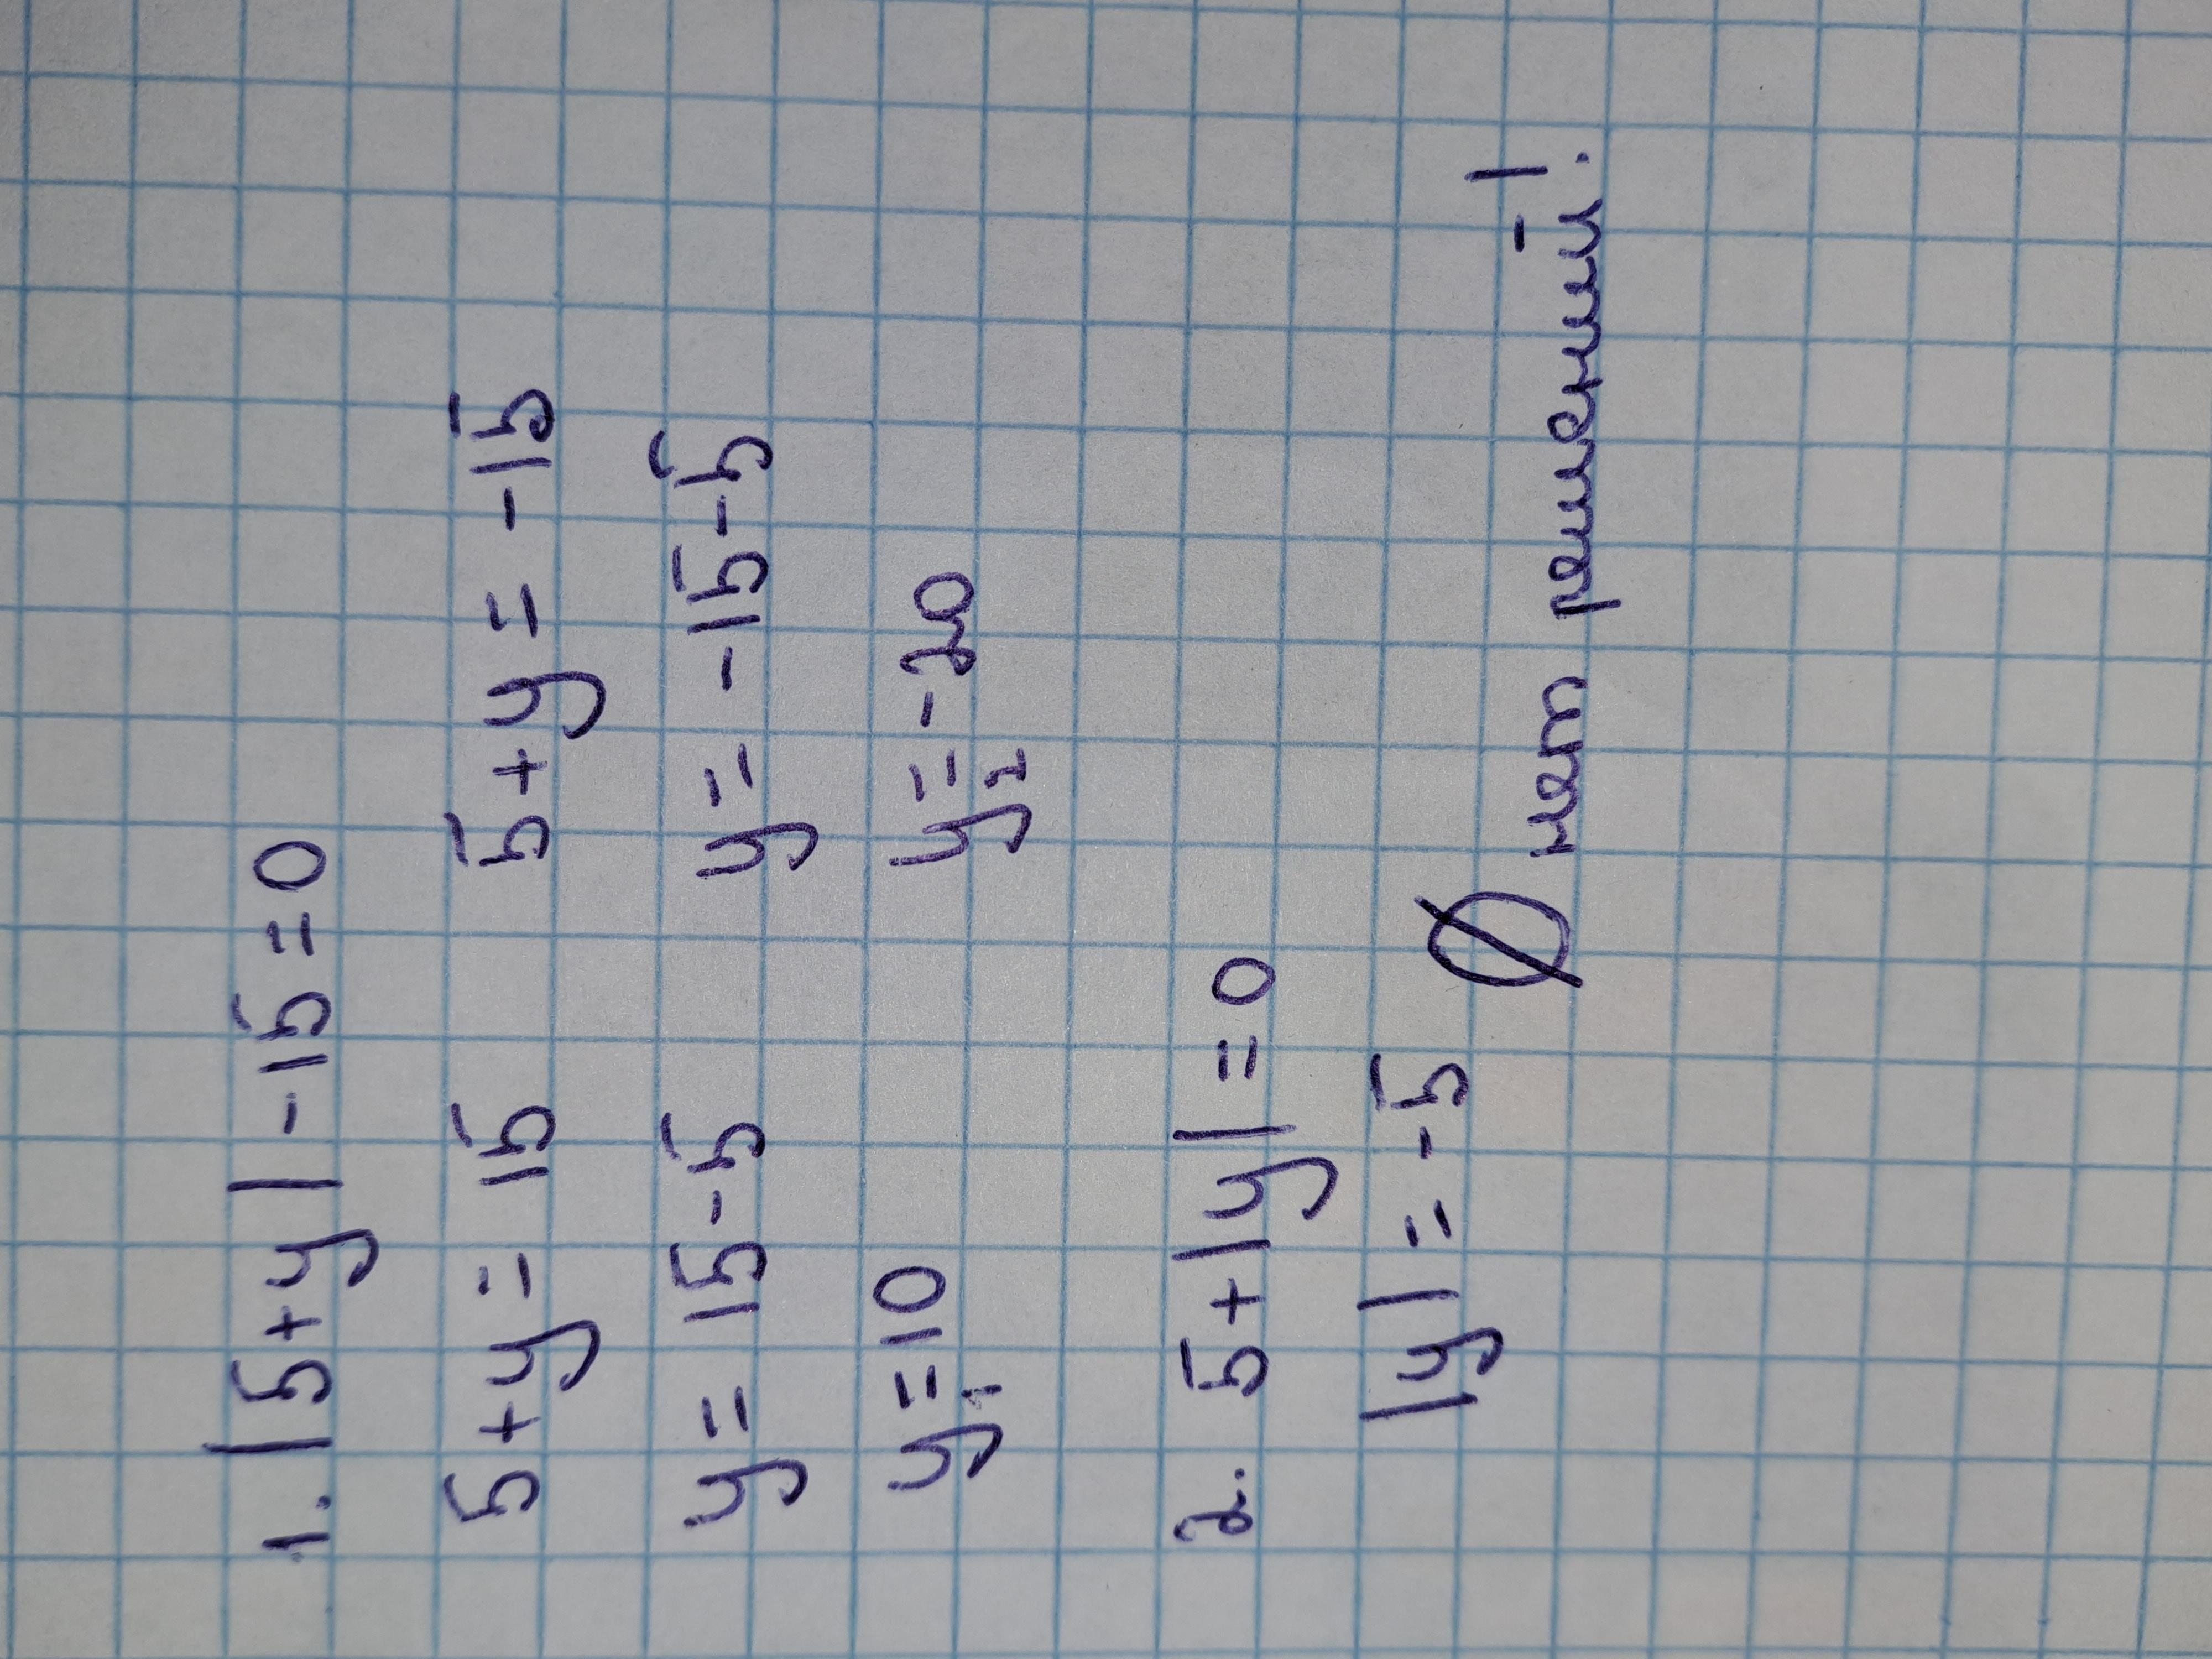 1. |5+y|-15=0
5+y=15 5+y=-15
y=15-5 y=-15-5
y₁=10 y₂=-20
2. 5+|y|=0
|y|=-5 Ø нет решений!